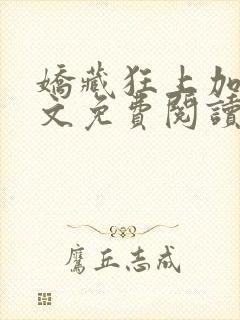 嬌藏狂上加
文免費閱讀
鷹丘志成